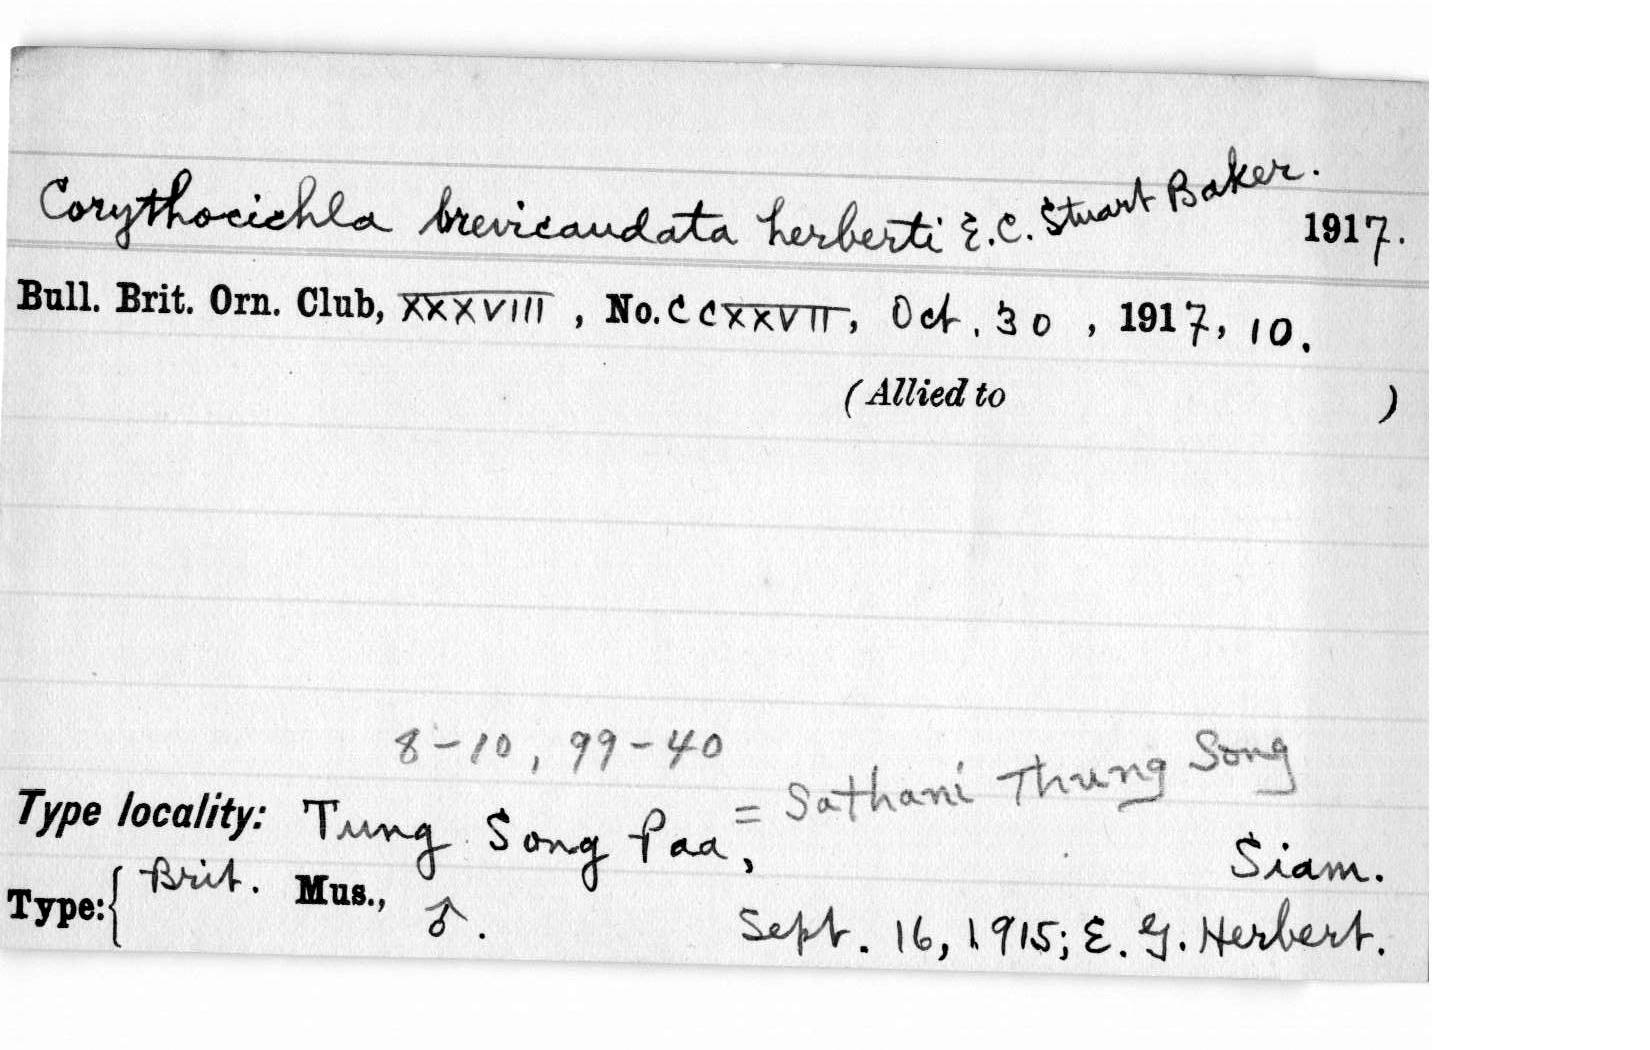 Corythocichla brevicaudata herberti E.C. Stuart Baker. 1917.
Bull. Brit. Orn. Club, XXXVIII, No. CCXXVII, Oct. 30, 1917, 10.
(Allied to )
8-10, 99-40
Type locality: Tung Song Paa, = Sathani Thung Song
Siam.
Type: { Brit. Mus., ♂. Sept. 16, 1915; E. G. Herbert.